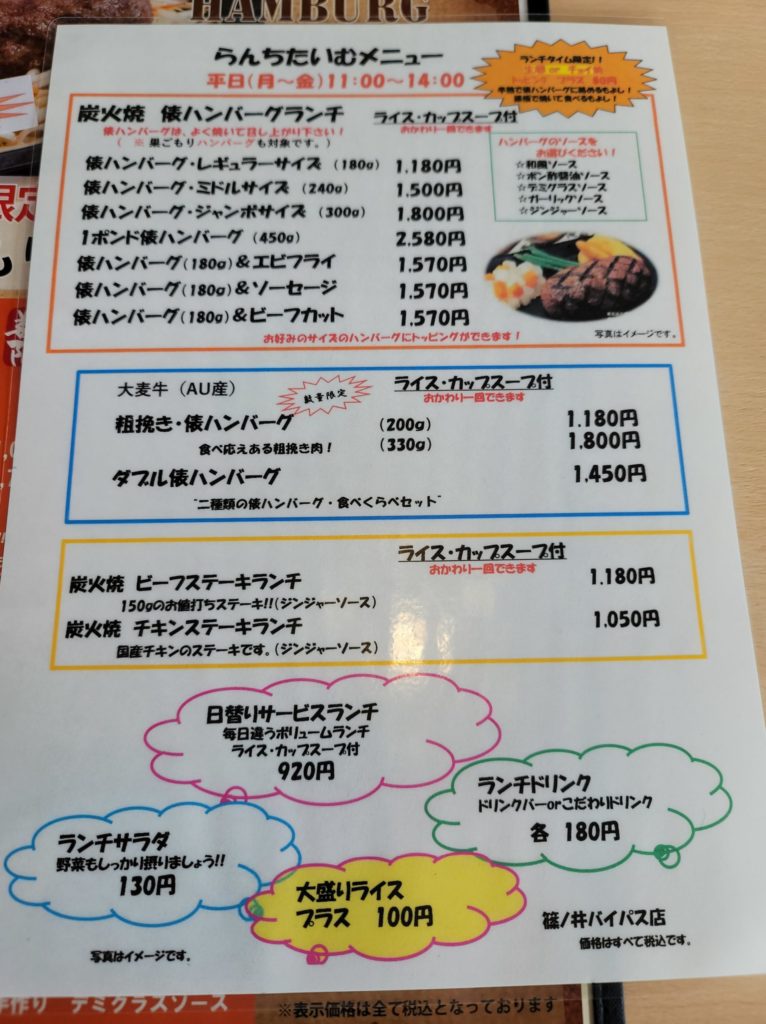 HAMBURG
らんちたいむメニュー
平日(月～金)11:00～14:00
ランチタイム限定!!
生卵 or チョイ焼
トッピング プラス 80円
半熟で俵ハンバーグに絡めるもよし!
炭火焼 俵ハンバーグランチ ライス・カップスープ付
俵ハンバーグは、よく焼いて召し上がり下さい! おかわり一回できます
(※ 巣ごもりハンバーグも対象です。)
俵ハンバーグ・レギュラーサイズ (180g) 1.180円
俵ハンバーグ・ミドルサイズ (240g) 1.500円
俵ハンバーグ・ジャンボサイズ (300g) 1.800円
1ポンド俵ハンバーグ (450g) 2.580円
俵ハンバーグ(180g)&エビフライ 1.570円
俵ハンバーグ(180g)&ソーセージ 1.570円
俵ハンバーグ(180g)&ビーフカット 1.570円
お好みのサイズのハンバーグにトッピングができます!
ハンバーグのソースを
お選びください!
☆和風ソース
☆ポン酢醤油ソース
☆デミグラスソース
☆ガーリックソース
☆ジンジャーソース
写真はイメージです。
大麦牛(AU産) 数量限定 ライス・カップスープ付
おかわり一回できます
粗挽き・俵ハンバーグ (200g) 1.180円
食べ応えある粗挽き肉! (330g) 1.800円
ダブル俵ハンバーグ 1,450円
"二種類の俵ハンバーグ・食べくらべセット"
ライス・カップスープ付
おかわり一回できます
炭火焼 ビーフステーキランチ 1.180円
150gのお値打ちステーキ!!(ジンジャーソース)
炭火焼 チキンステーキランチ 1.050円
国産チキンのステーキです。(ジンジャーソース)
日替りサービスランチ
毎日違うボリュームランチ
ライス・カップスープ付
920円
ランチドリンク
ドリンクバーorこだわりドリンク
各 180円
ランチサラダ
野菜もしっかり摂りましょう!!
130円
大盛りライス
プラス 100円
篠ノ井バイパス店
価格はすべて税込です。
写真はイメージです。
手作り デミグラスソース
※表示価格は全て税込となっております